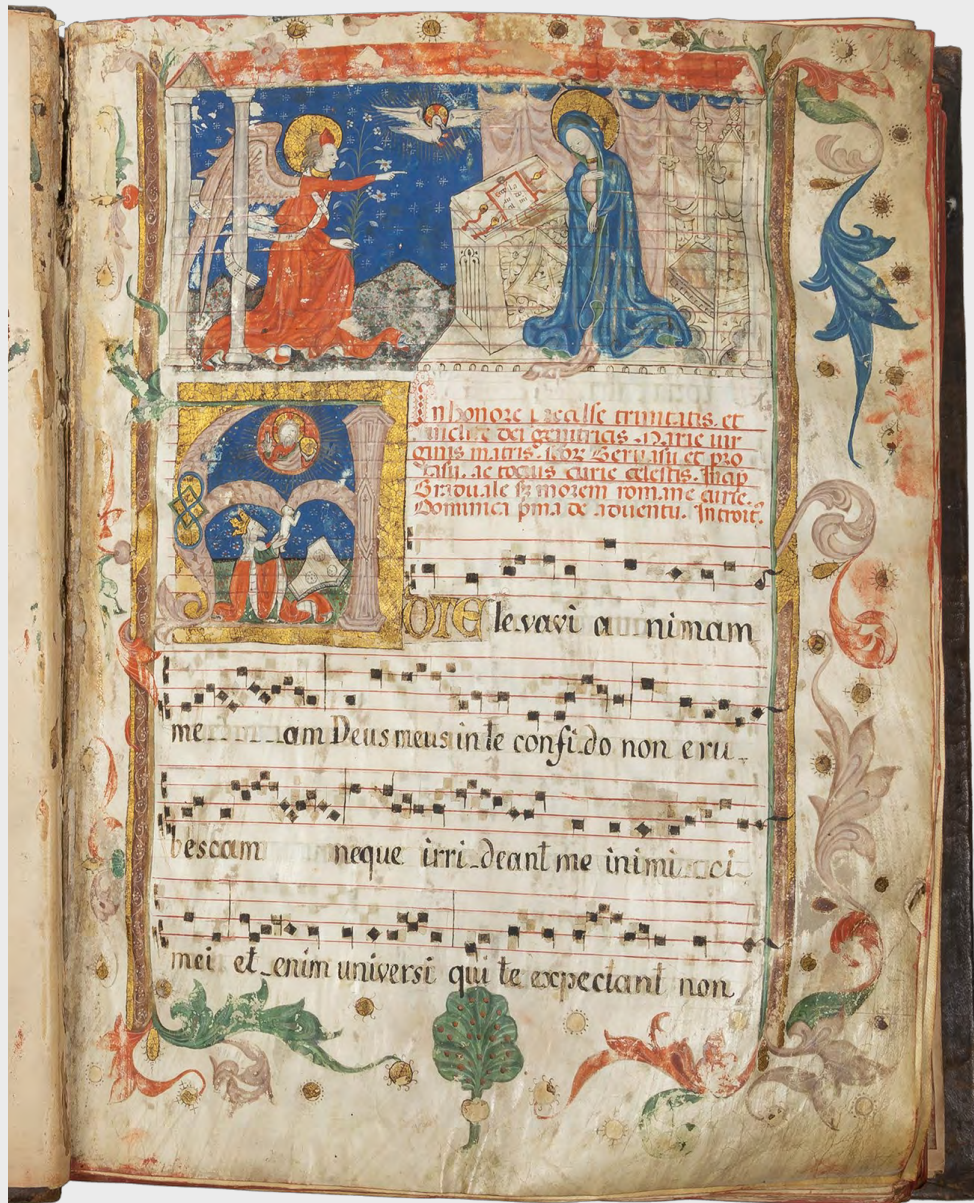 In honore
inclite dei genitricis Marie vir
ginis matris. Geruasii et pro
tasii. ac tocius curie celestis. Incip
Graduale sz morem romane curie.
Dominica pma de aduentu. Introit.
ADTE levavi a nimam
me am Deus meus in te confi do non eru
bescam neque irri deant me inimi ci
mei et enim universi qui te expectant non